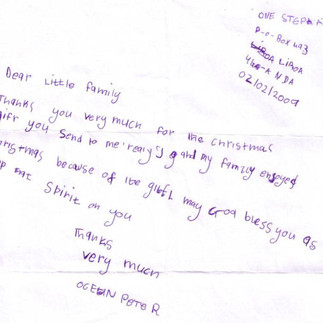 ONE STEP A
P-o-Box 493
LIRA
02/02/2009
Dear Little family
Thanks you very much for the christmas
gift you send to me realy I g and my family enjoyed
christmas because of the gift. may God bless you as
Spirit on you
Thanks
very much
OCEN PETER